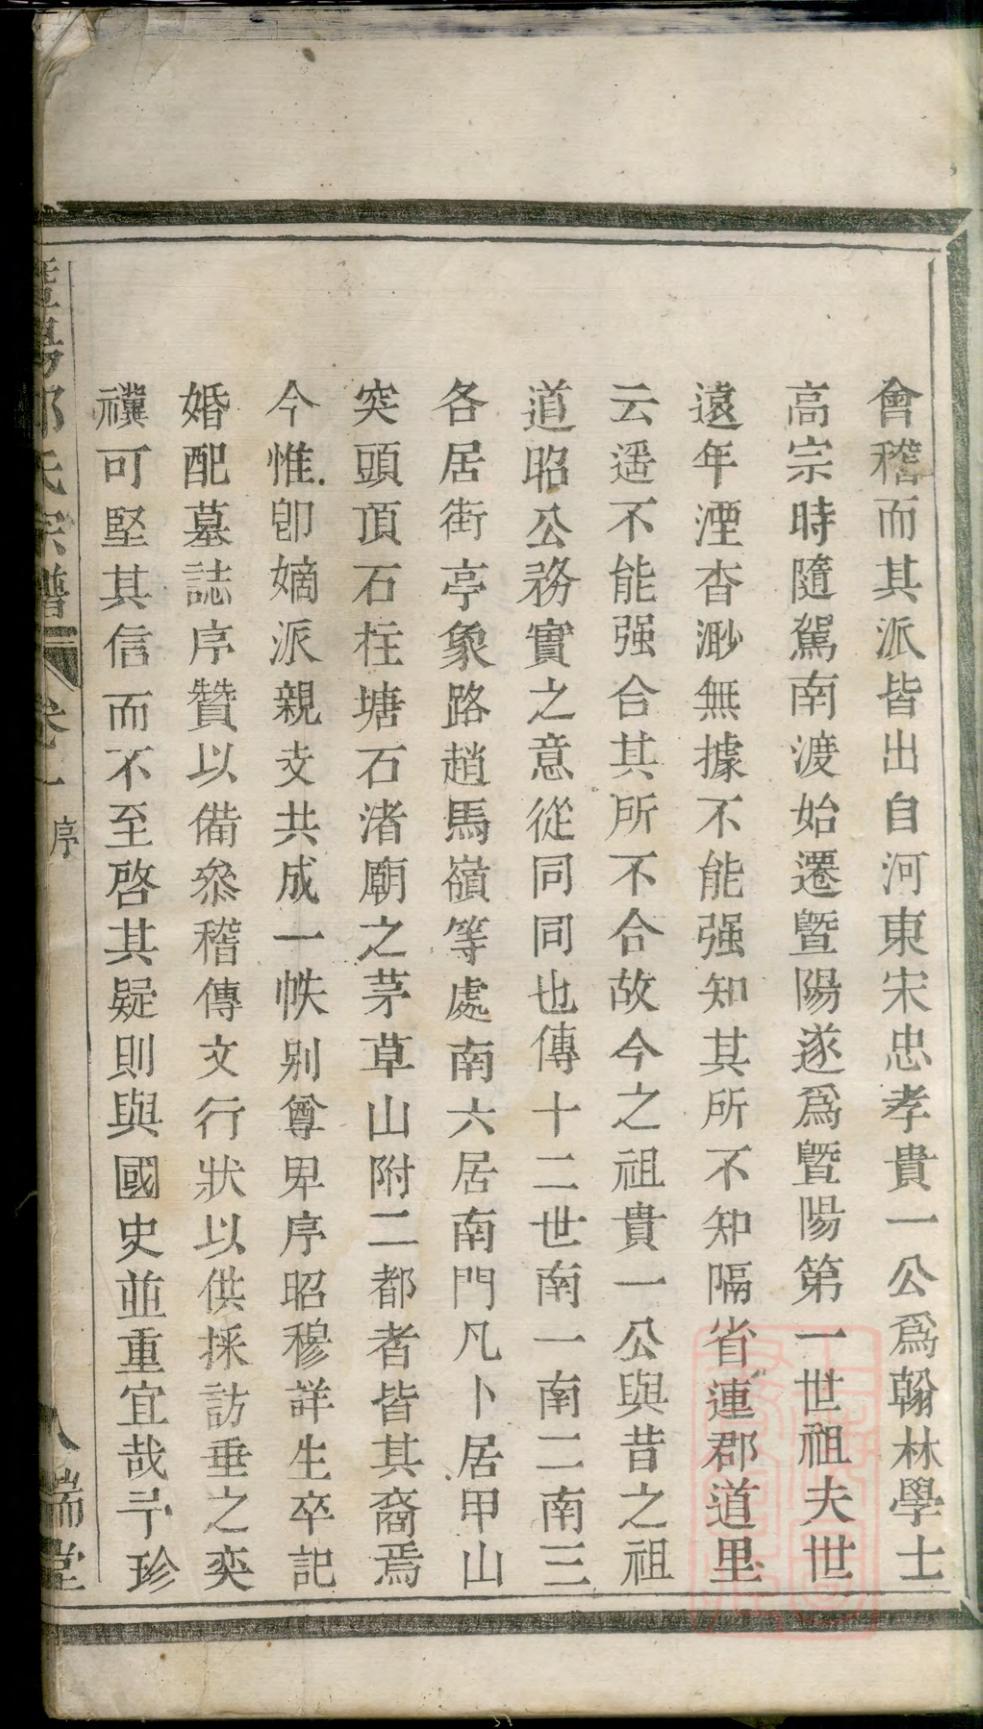 會稽而其派皆出自河東宋忠孝貴一公爲翰林學士
高宗時隨駕南渡始遷暨陽遂爲暨陽第一世祖夫世
遠年湮杳渺無據不能强知其所不知隔省連郡道里
云遥不能强合其所不合故今之祖貴一公與昔之祖
道昭公務實之意從同同也傳十二世南一南二南三
各居街亭象路趙馬嶺等處南六居南門凡卜居甲山
突頭頂石柱塘石渚廟之茅草山附二都者皆其裔焉
今惟卽嫡派親支共成一帙别尊卑序昭穆詳生卒記
婚配墓誌序贊以備叅稽傳文行狀以供採訪垂之奕
禩可堅其信而不至啓其疑則與國史並重宜哉予珍
氏宗譜 卷一 序 八 瑞堂